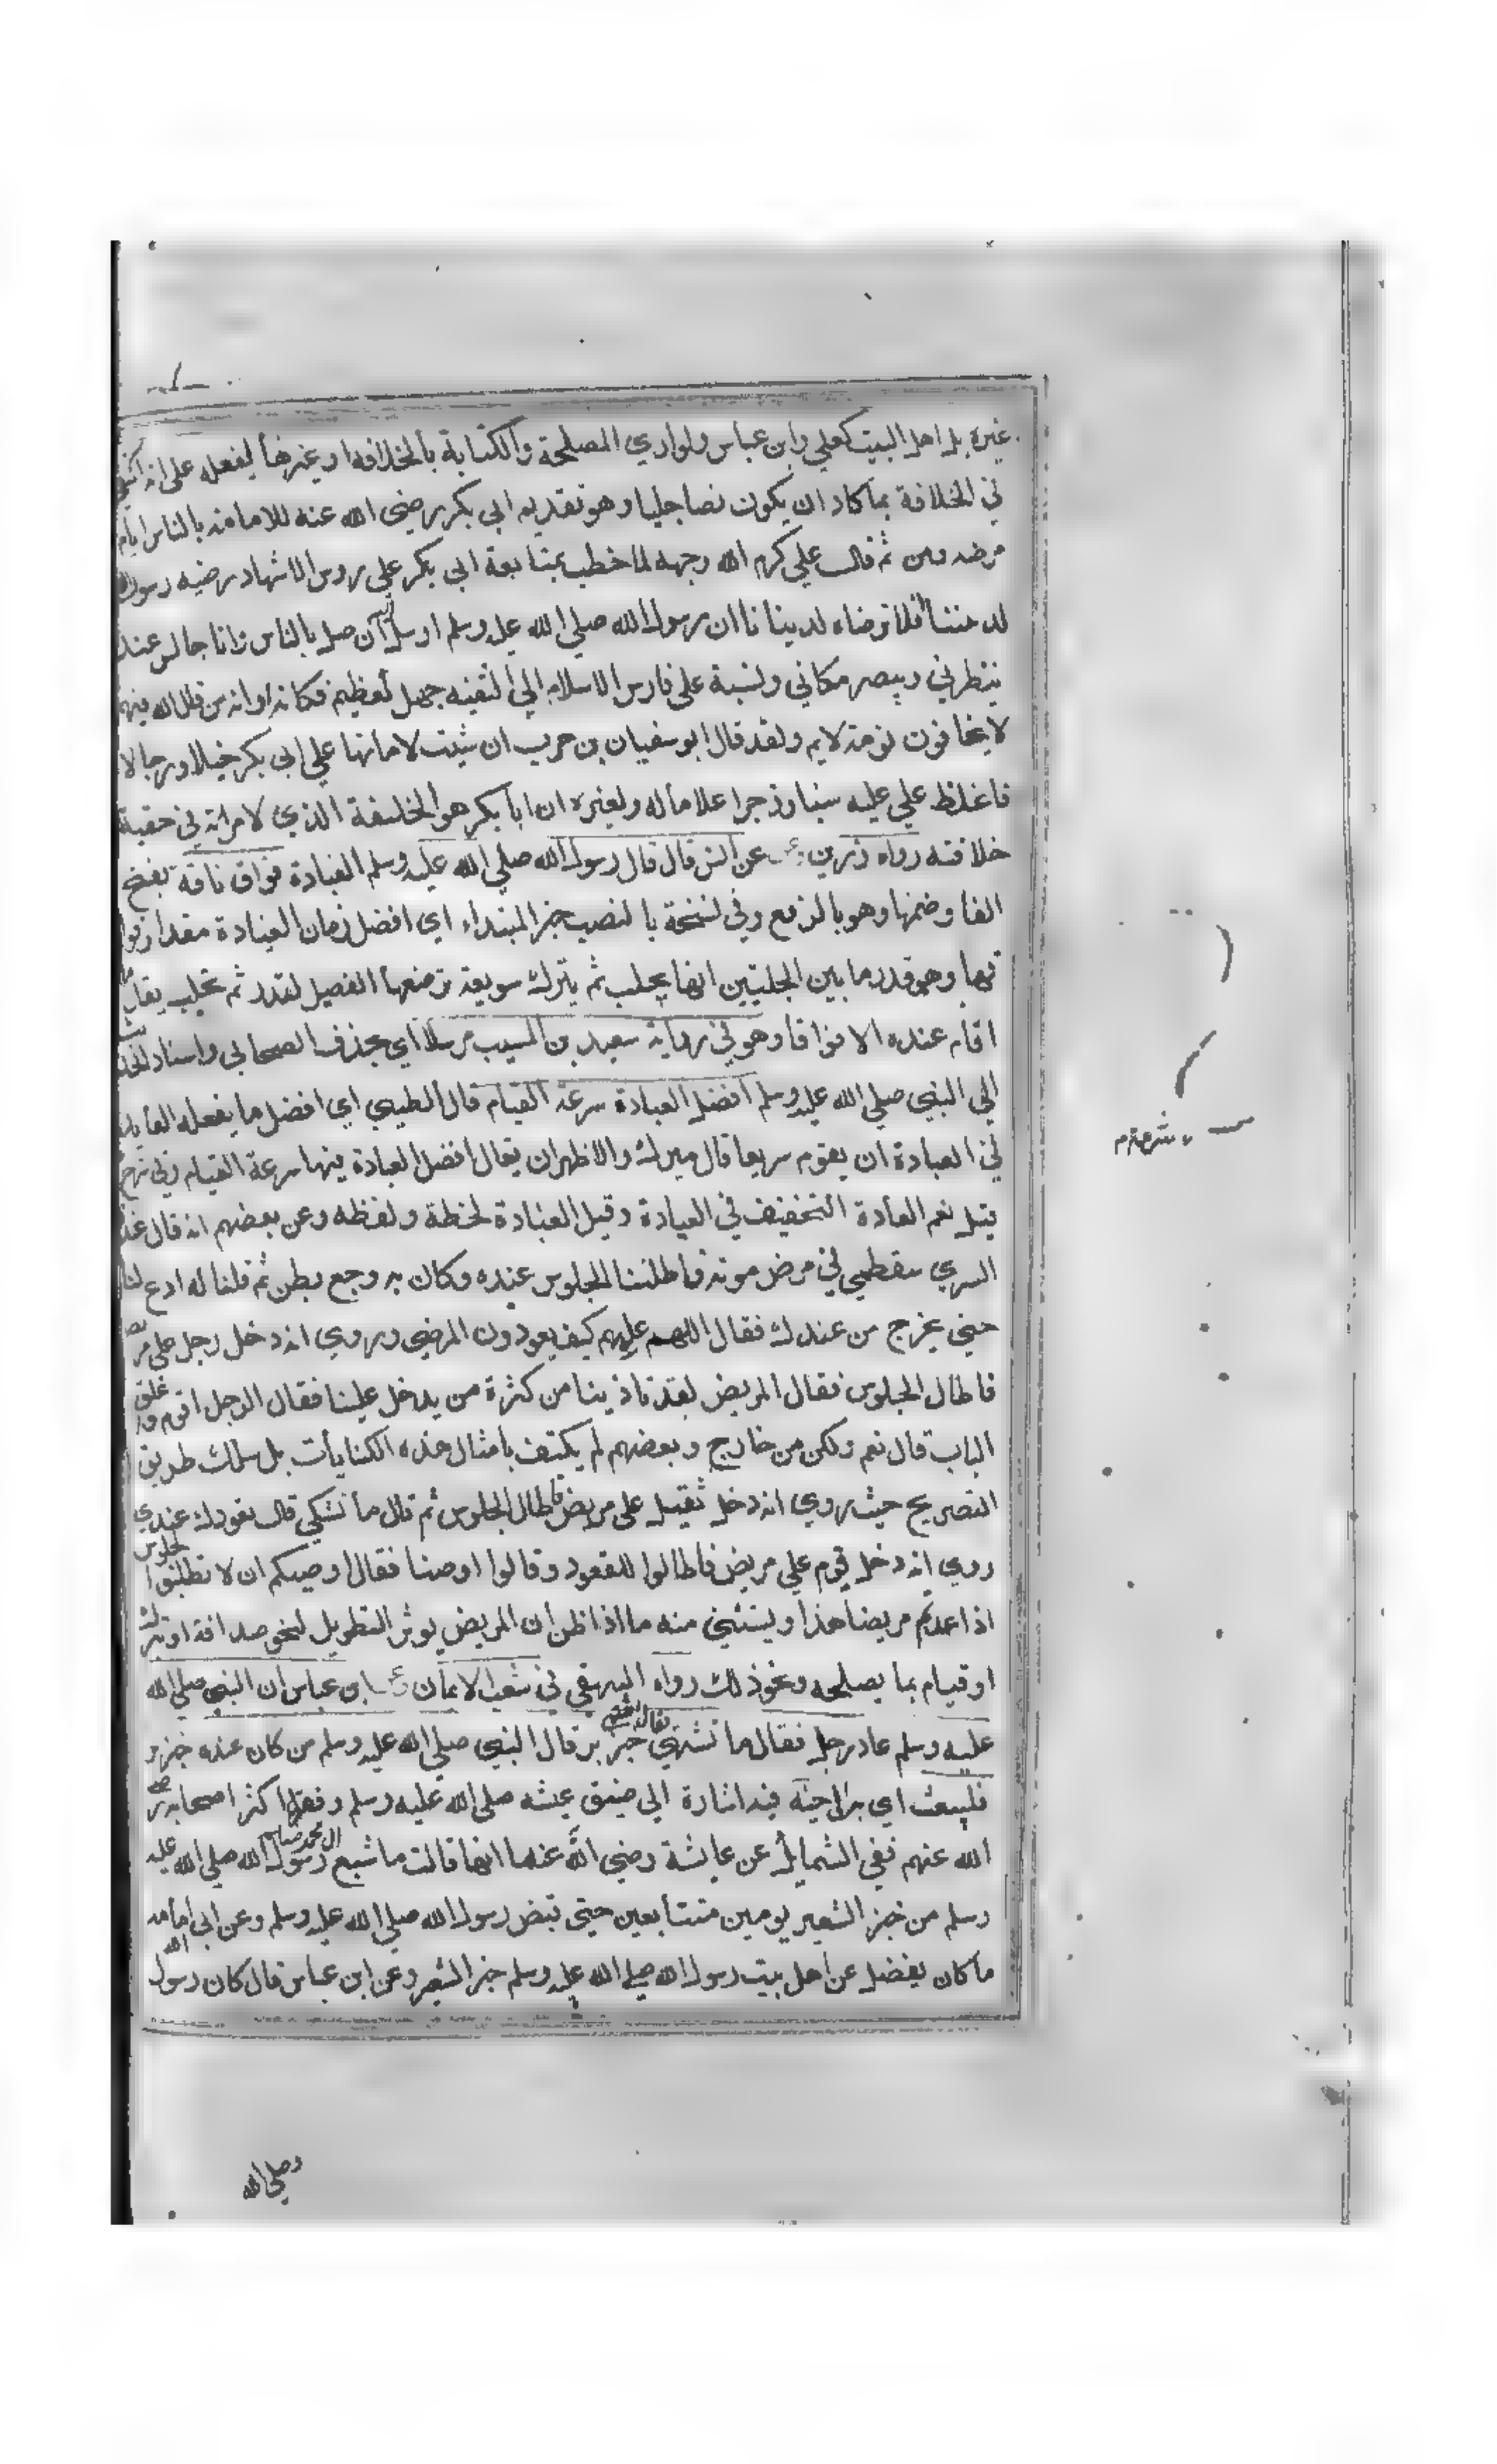 غيره بل اهل البيت كعلي وابن عباس ولو اري المصلحة والكتابة بالخلافه او غيرها لفعله على انه اكتفي
في الخلافة بما كاد ان يكون نصا جليا وهو تقديم ابي بكر رضى الله عنه للامامه بالناس ايام
مرضه ومن ثم قال علي كرم الله وجهه لما خطب بمتابعة ابي بكر على روس الاشهاد رضيه رسول الله
لديننا افلا نرضاه لدنيانا ان رسول الله صلي الله عليه وسلم ارسل اليه ان صل بالناس وانا جالس عنده
ينظرني ويبصر مكاني ونسبة على فارس الاسلام الي التقيه جهل لعظيم مكانه وانه من قال الله فيهم
لا يخافون لومة لايم ولقد قال ابو سفيان بن حرب ان شيت لاملانها علي ابي بكر خيلا ورجالا
فاغلظ علي عليه سبا وزجرا علاما له ولغيره ان ابا بكر هو الخليفة الذي لا مراية في حقية
خلافته رواه رزين وعن انس قال قال رسول الله صلي الله عليه وسلم العيادة فواق ناقة بفتح
الفا وضمها وهو بالرفع وفي نسخة بالنصب خبر المبتداء اي افضل زمان العيادة مقدار فوا
قها وهو قدر ما بين الحلبتين انها يحلب ثم يترك سويعة ترضعها الفصيل لتدر ثم تحلب يقال ما
اقام عنده الا فواقا وهو في رواية سعيد بن المسيب مرسلا اي بحذف الصحابي واسناد الحديث
الي النبي صلي الله عليه وسلم افضل العيادة سرعة القيام قال الطيبي اي افضل ما يفعله العايد
في العيادة ان يقوم سريعا قال ميرك والاظهر ان يقال افضل العيادة فيها سرعة القيام وفي شرح
قيل نعم العادة التخفيف في العيادة وقيل العيادة لحظة ولفظه وعن بعضهم انه قال عد
السري سقطي في مرض موته فاطلنا الجلوس عنده وكان به وجع بطن ثم قلنا له ادع لنا
حتي نخرج من عندك فقال اللهم علمهم كيف يعودون المرضي وروي انه دخل رجل على مريض
فاطال الجلوس فقال المريض لقد تاذينا من كثرة من يدخل علينا فقال الرجل اقوم واغلق
الباب قال نعم ولكن من خارج وبعضهم لم يكتف بامثال هذه الكنايات بل سلك طريق
التصريح حيث روي انه دخل ثقيل على مريض فاطال الجلوس ثم قال ما تشكي قال قعودك عندي
روي انه دخل قوم علي مريض فاطالوا القعود وقالوا اوصنا فقال اوصيكم ان لا تطيلوا الجلوس
اذا عدتم مريضا هذا ويستثني منه ما اذا ظن ان المريض يوثر التطويل لنحو صداقة او تبرك
او قيام بما يصلحه ونحو ذلك رواه البيهقي في شعب الايمان وعن ابن عباس ان النبي صلي الله
عليه وسلم عاد رجل فقال ما تشتهي فقال اشتهي خبز بر قال النبي صلي الله عليه وسلم من كان عنده خبز بر
فليبعث اي به الي اخيه فيه اشارة الي ضيق عيشه صلى الله عليه وسلم وفقر اكثر اصحابه رضي
الله عنهم ففي الشمايل عن عايشة رضي الله عنها انها قالت ما شبع ال محمد رسول الله صلي الله عليه
وسلم من خبز الشعير يومين متتابعين حتي قبض رسول الله صلي الله عليه وسلم وعن ابي امامه
ما كان يفضل عن اهل بيت رسول الله صلي الله عليه وسلم خبز الشعير وعن ابن عباس قال كان رسول الله
صلى الله